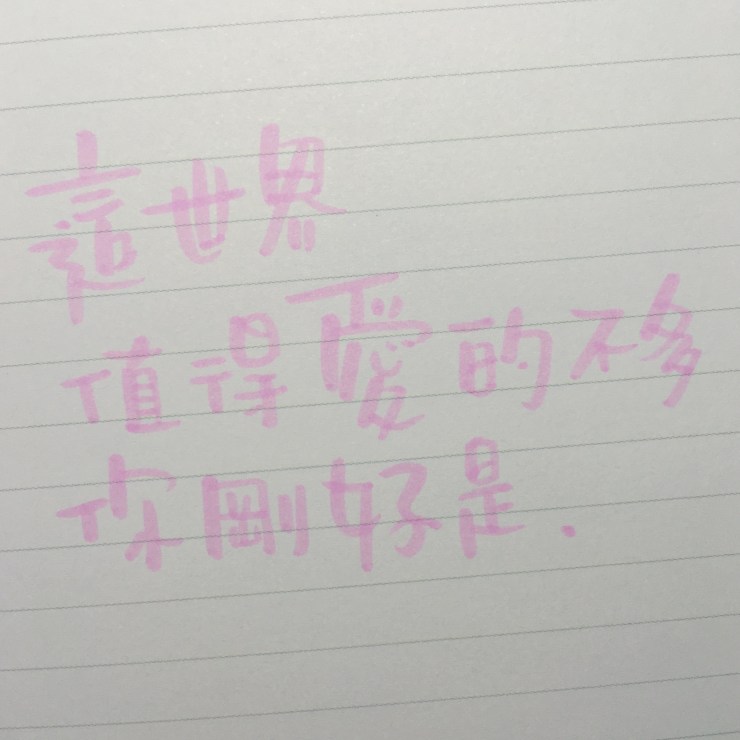 這世界
值得愛的不多
你剛好是.